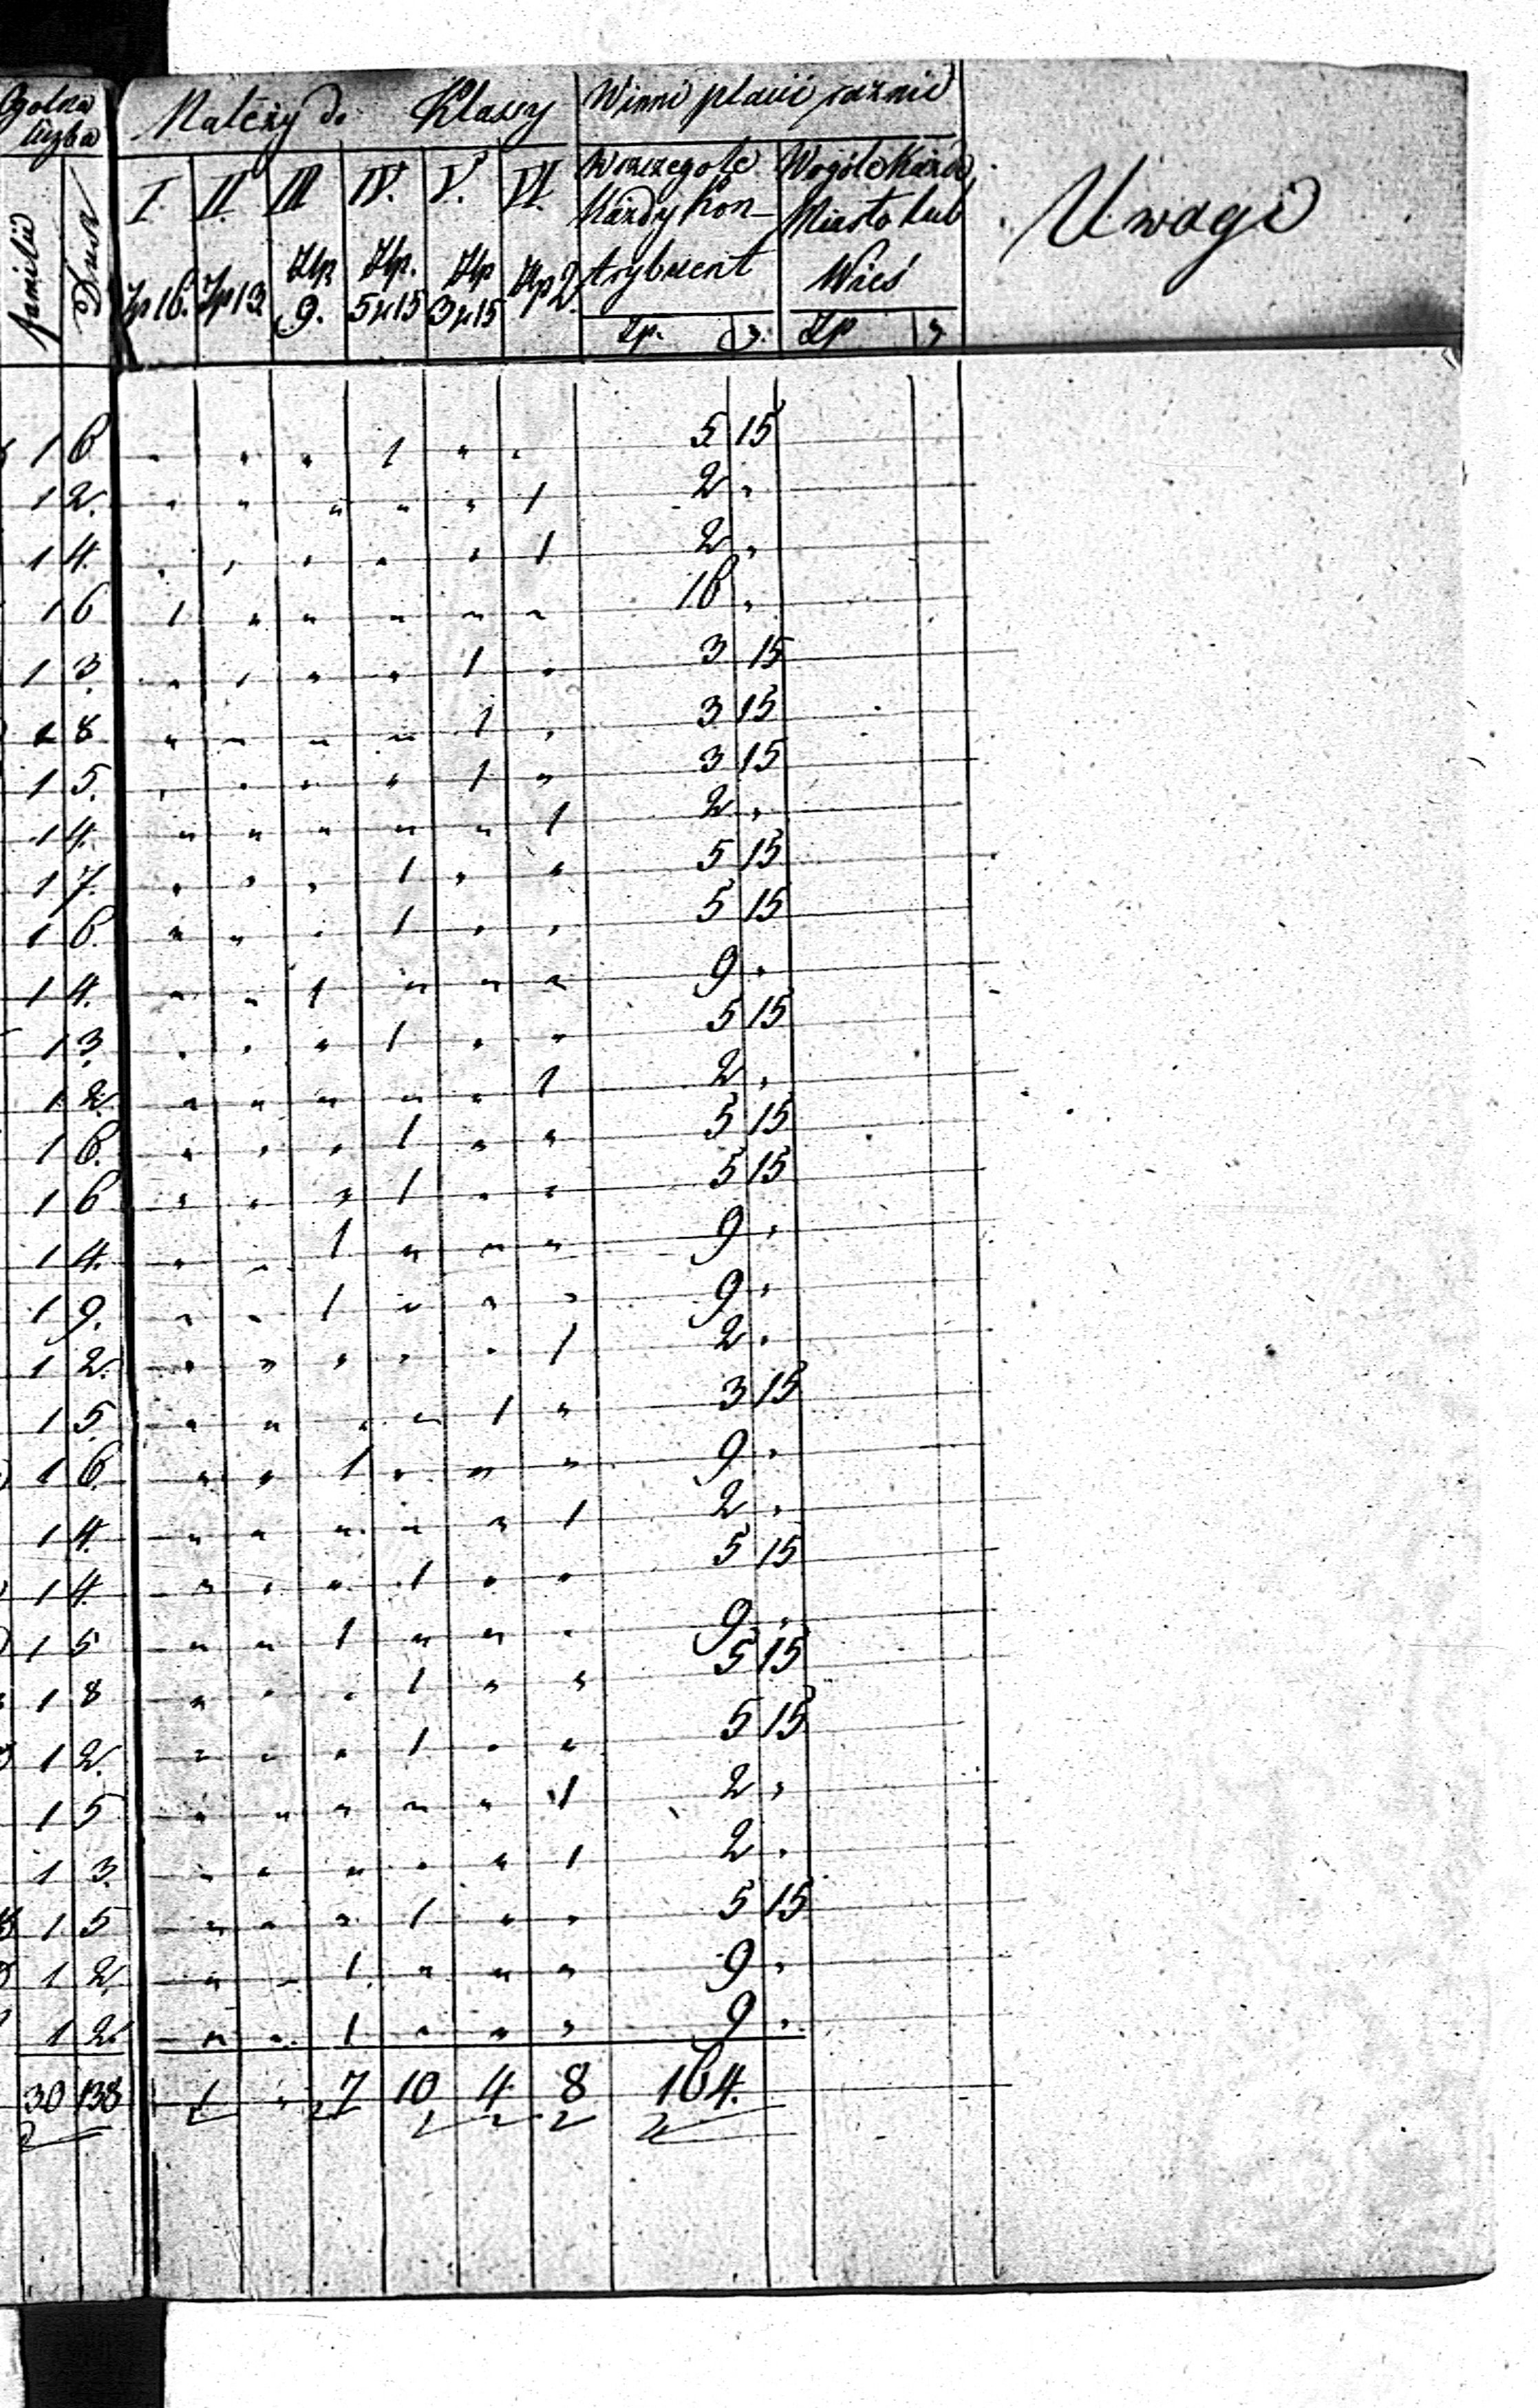 Ogolna liczba | Należy do Klassy | Winni płacić roznie | Uwagi
familii | Dusz | I. Zp 16. | II. Zp 13. | III Złp 9. | IV. Złp. 5 gr 15 | V. Złp 3 gr 15 | VI. Złp 2. | W szczegole każdy kontrybuent Zp. g. | Wogóle każde Miasto lub Wieś Zp g
1 | 6 | " | " | " | 1 | " | " | 5 | 15
1 | 2. | " | " | " | " | " | 1 | 2 | "
1 | 4. | " | " | " | " | " | 1 | 2 | "
1 | 6 | 1 | " | " | " | " | " | 16 | "
1 | 3. | " | " | " | " | 1 | " | 3 | 15
1 | 8 | " | " | " | " | 1 | " | 3 | 15
1 | 5. | " | " | " | " | 1 | " | 3 | 15
1 | 4. | " | " | " | " | " | 1 | 2 | "
1 | 7. | " | " | " | 1 | " | " | 5 | 15
1 | 6. | " | " | " | 1 | " | " | 5 | 15
1 | 4. | " | " | 1 | " | " | " | 9 | "
1 | 3. | " | " | " | 1 | " | " | 5 | 15
1 | 2. | " | " | " | " | " | 1 | 2 | "
1 | 6. | " | " | " | 1 | " | " | 5 | 15
1 | 6 | " | " | " | 1 | " | " | 5 | 15
1 | 4. | " | " | 1 | " | " | " | 9 | "
1 | 9. | " | " | 1 | " | " | " | 9 | "
1 | 2. | " | " | " | " | " | 1 | 2 | "
1 | 5. | " | " | " | " | 1 | " | 3 | 15
1 | 6. | " | " | 1 | " | " | " | 9 | "
1 | 4. | " | " | " | " | " | 1 | 2 | "
1 | 4. | " | " | " | 1 | " | " | 5 | 15
1 | 5 | " | " | 1 | " | " | " | 9 | "
1 | 8 | " | " | " | 1 | " | " | 5 | 15
1 | 2. | " | " | " | 1 | " | " | 5 | 15
1 | 5 | " | " | " | " | " | 1 | 2 | "
1 | 3. | " | " | " | " | " | 1 | 2 | "
1 | 5 | " | " | " | 1 | " | " | 5 | 15
1 | 2. | " | " | 1 | " | " | " | 9 | "
1 | 2. | " | " | 1 | " | " | " | 9 | "
30 | 138 | 1 | " | 7 | 10 | 4 | 8 | 164.